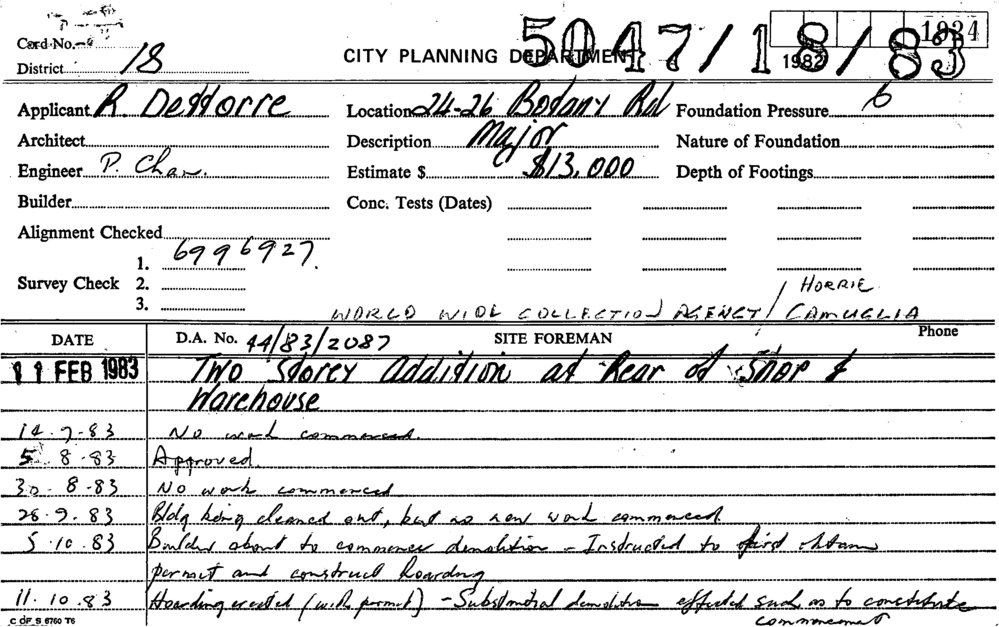 Card No.
District 18
CITY PLANNING DEPARTMENT
5047/18/83
1982
1934
Applicant R. DeHorre
Location 24-26 Botany Rd
Foundation Pressure 6
Architect
Description Major
Nature of Foundation
Engineer P. Chan.
Estimate $ $13,000
Depth of Footings
Builder
Conc. Tests (Dates)
Alignment Checked
Survey Check 1. 6996927.
2.
3.
WORLD WIDE COLLECTION AGENCY / HORRIE
CAMUGLIA
DATE D.A. No. 44/83/2087 SITE FOREMAN Phone
11 FEB 1983 Two Storey Addition at Rear of Shop &
Warehouse
14.7.83 No work commenced.
5.8.83 Approved.
30.8.83 No work commenced
28.9.83 Bldg being cleaned out, but no new work commenced.
5.10.83 Builder about to commence demolition - Instructed to first obtain
permit and construct hoarding
11.10.83 Hoarding erected (with permit) - Substantial demolition effected such as to constitute
commencement
C OF S 6760 T6